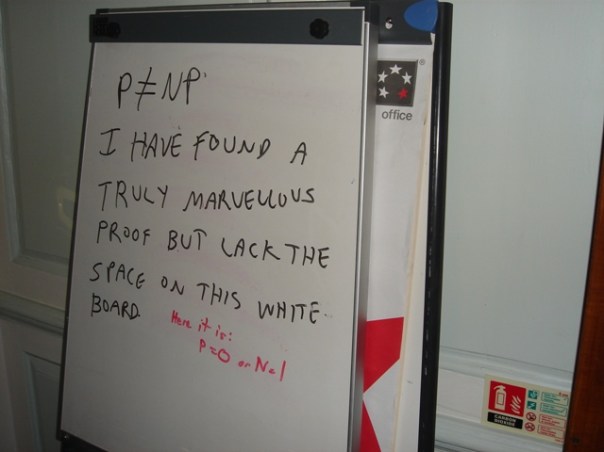 P≠NP
I HAVE FOUND A
TRULY MARVELLOUS
PROOF BUT LACK THE
SPACE ON THIS WHITE-
BOARD
Here it is:
P=0 or N=1
office
CARBON
DIOXIDE